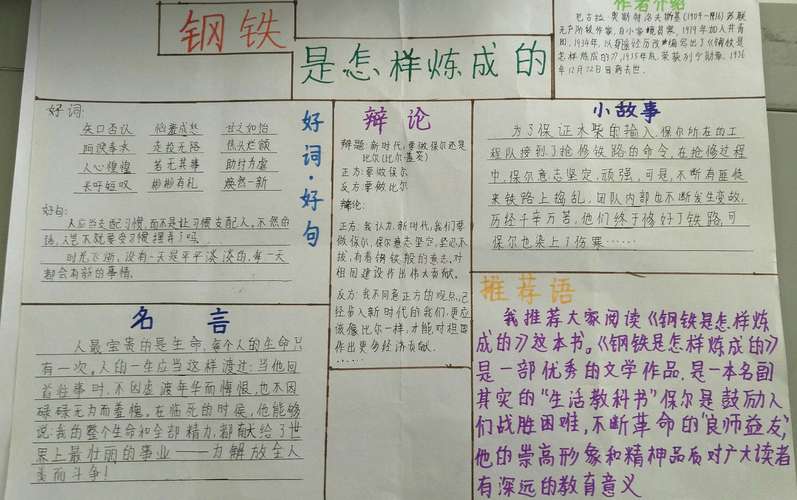 钢铁
是怎样炼成的
作者介绍
尼古拉·奥斯特洛夫斯基(1904-1936)苏联
无产阶级作家,自小家境贫寒,1919年加入共青
团,1934年,以身
怎样炼成的》,1935年底荣获列宁勋章,1936
年12月22日因病去世.
好词:
矢口否认
世之如怡
走投无路
焦头烂额
人心惶惶
若无其事
助纣为虐
长吁短叹
彬彬有礼
焕然一新
好句:
人应当支配习惯,而不是让习惯支配人。不然的
话,人岂不就要受习惯摆弄了吗.
时光飞逝,没有一天是平平淡淡的,每一天
都会有新的事情.
好词·好句
辩论
辩题:新时代,要做保尔还是
比尔(比尔盖茨)
正方:要做保尔
反方:要做比尔
辩论:
正方:我认为,新时代,我们要
做保尔,保尔意志坚定,坚忍不
拔,有着钢铁般的意志.对
祖国建设作出伟大贡献.
反方:我不同意正方的观点,已
经步入新时代的我们,更应
该像比尔一样,才能对祖国
作出更多经济贡献.
小故事
为了保证木柴的输入,保尔所在的工
程队接到了抢修铁路的命令,在抢修过程
中,保尔意志坚定,顽强,可是,不断有匪徒
来铁路上捣乱,团队内部也不断发生变故,
历经千辛万苦,他们终于修好了铁路,可
保尔也染上了伤寒……
名言
人最宝贵的是生命,每个人的生命只
有一次。人的一生应当这样渡过:当他回
首往事时,不因虚渡年华而悔恨,也不因
碌碌无为而羞愧。在临死的时候,他能够
说:我的整个生命和全部精力,都献给了世
界上最壮丽的事业——为解放全人
类而斗争!
推荐语
我推荐大家阅读《钢铁是怎样炼
成的》这本书。《钢铁是怎样炼成的》
是一部优秀的文学作品.是一本名副
其实的“生活教科书”保尔是鼓励人
们战胜困难,不断革命的“良师益友”,
他的崇高形象和精神品质对广大读者
有深远的教育意义